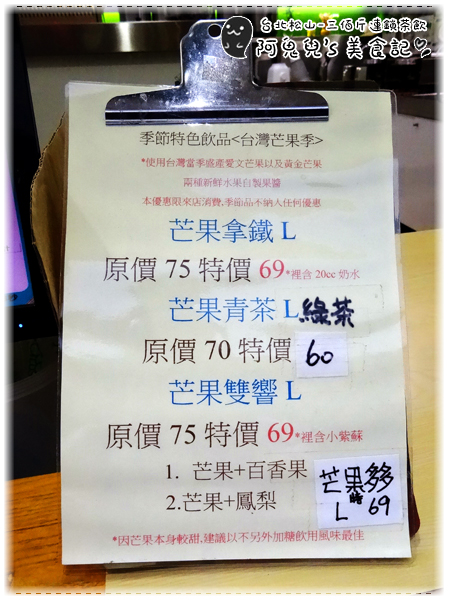 台北松山-三佰斤連鎖茶飲
阿兒兒's 美食記
季節特色飲品<台灣芒果季>
*使用台灣當季盛產愛文芒果以及黃金芒果
兩種新鮮水果自製果醬
本優惠限來店消費,季節品不納入任何優惠
芒果拿鐵 L
原價 75 特價 69*裡含 20cc 奶水
芒果青茶 L綠茶
原價 70 特價 60
芒果雙響 L
原價 75 特價 69*裡含小紫蘇
1. 芒果+百香果
2.芒果+鳳梨
芒果多多
L 69
*因芒果本身較甜,建議以不另外加糖飲用風味最佳